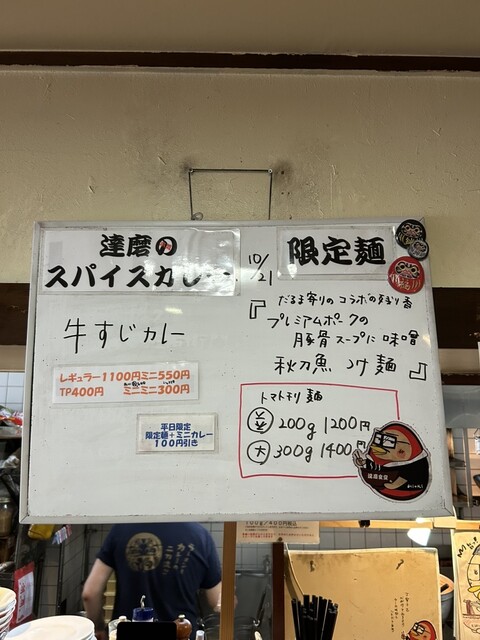 達磨の
スパイスカレー
牛すじカレー
レギュラー1100円ミニ550円
TP400円 ミニミニ300円
平日限定
限定麺+ミニカレー
100円引き
10/21
限定麺
『だるま寄りのコラボの残り香
プレミアムポークの
豚骨スープに味噌
秋刀魚つけ麺』
トマトチリ麺
並 200g 1200円
大 300g 1400円
達磨食堂